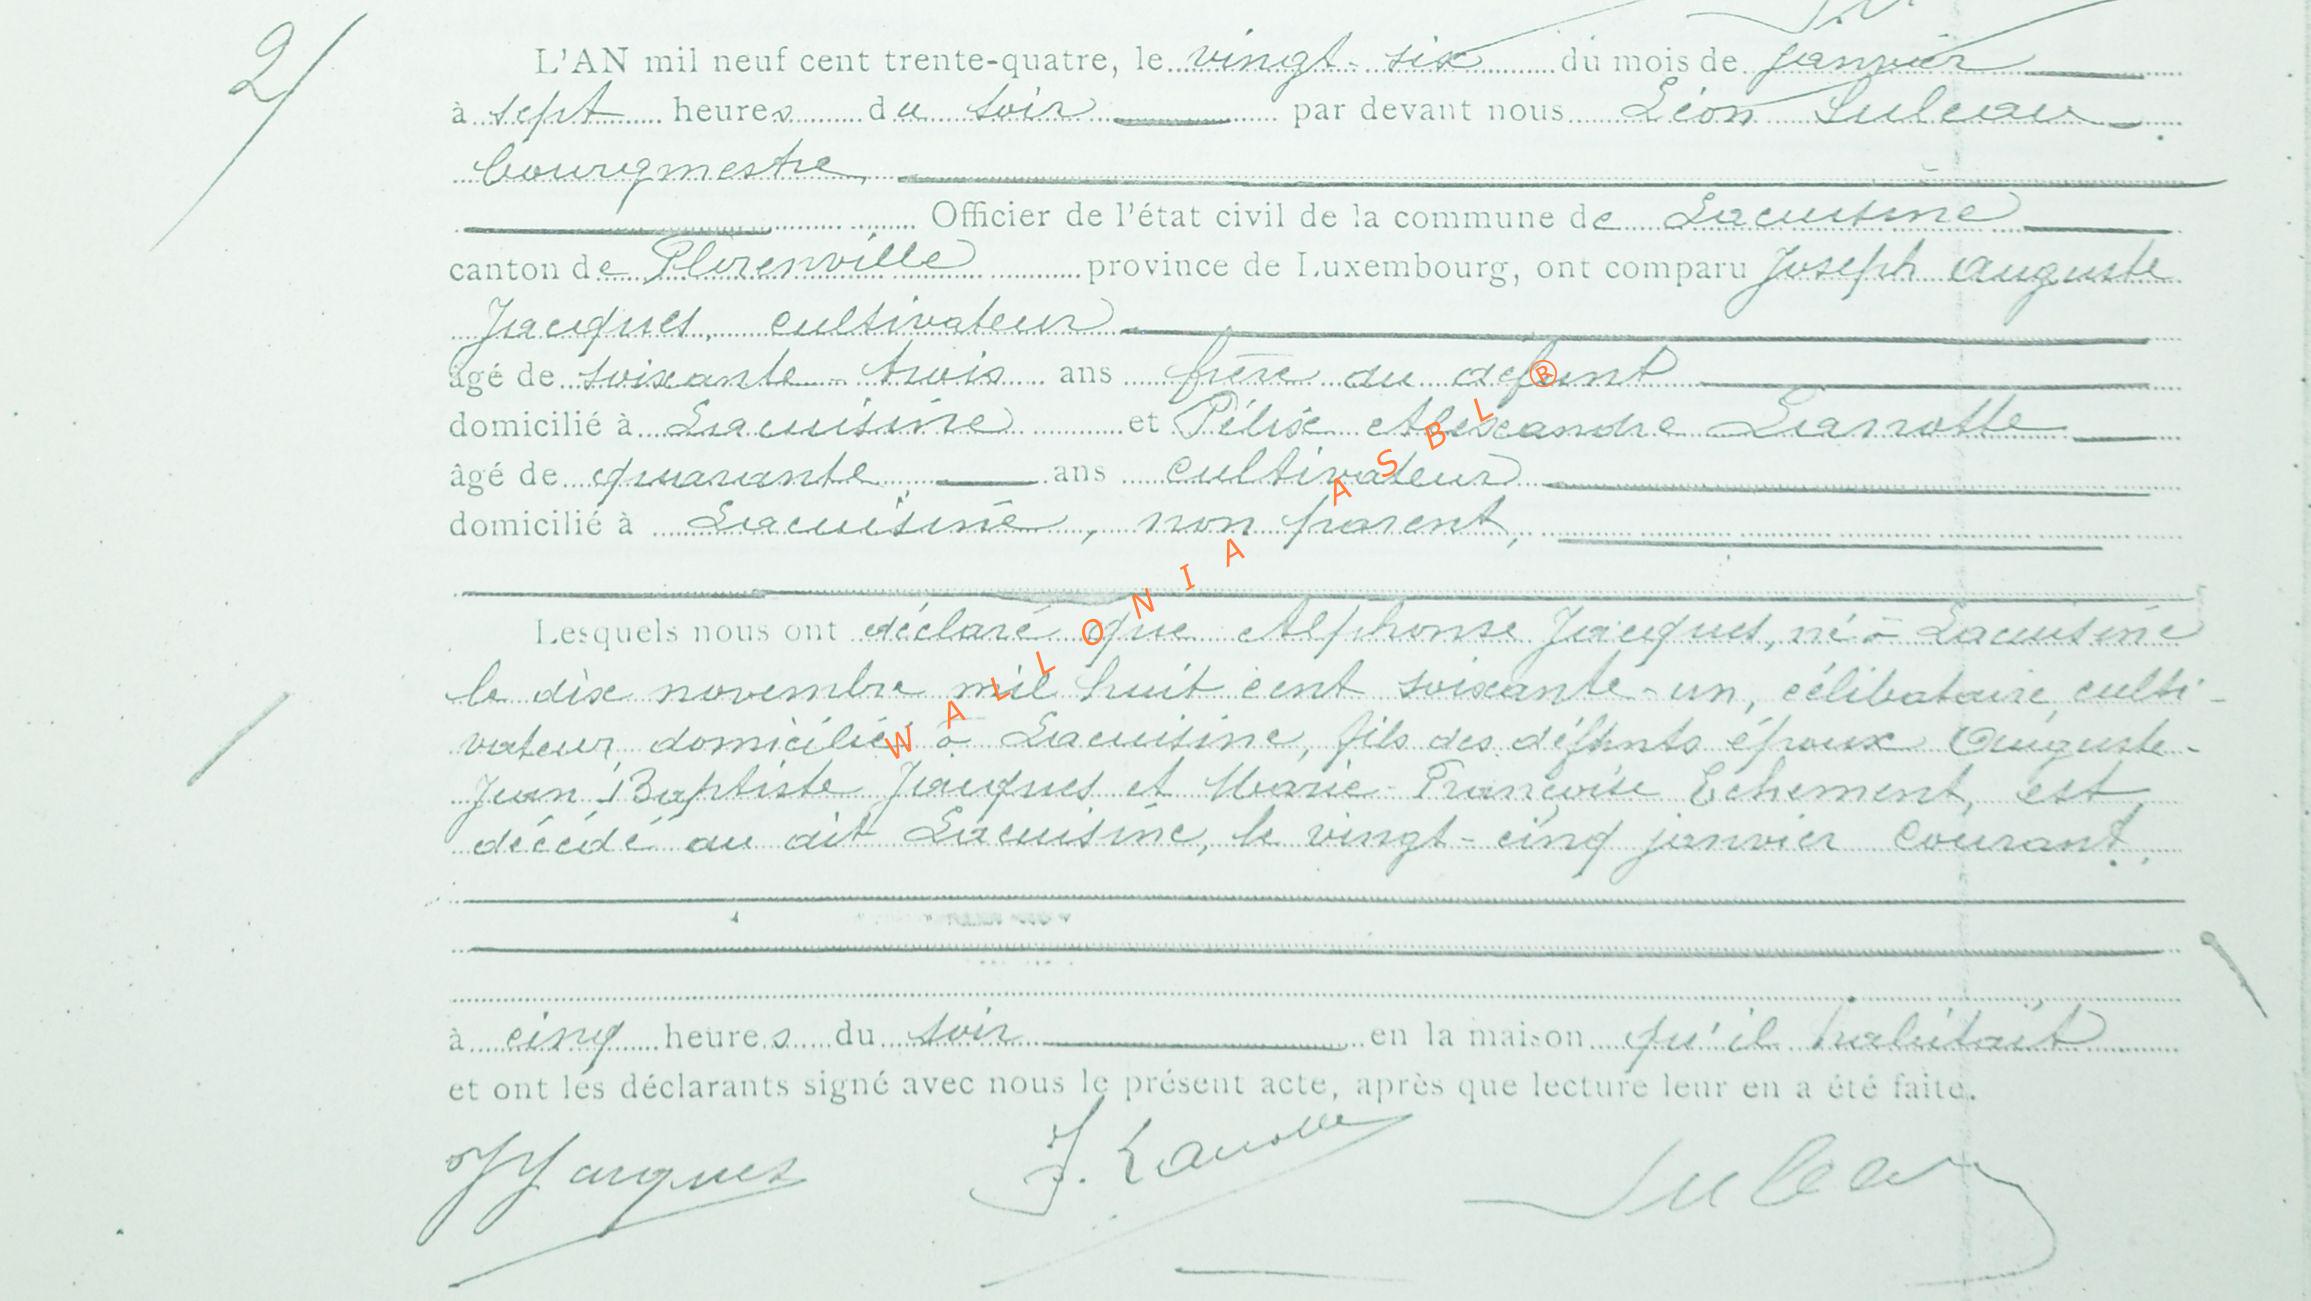 2/
L'AN mil neuf cent trente-quatre, le vingt-six du mois de janvier
à sept heures du soir par devant nous Léon Suleau
bourgmestre,
Officier de l'état civil de la commune de Lacuisine
canton de Florenville province de Luxembourg, ont comparu Joseph Auguste
Jacques, cultivateur
âgé de soixante-trois ans frère du défunt
domicilié à Lacuisine et Félix Alexandre Lanotte
âgé de quarante ans cultivateur
domicilié à Lacuisine, non parent,
Lesquels nous ont déclaré que Alphonse Jacques, né à Lacuisine
le dix novembre mil huit cent soixante-un, célibataire, culti-
vateur, domicilié à Lacuisine, fils des défunts époux Auguste-
Jean Baptiste Jacques et Marie-Françoise Echement, est
décédé au dit Lacuisine, le vingt-cinq janvier courant,
à cinq heures du soir en la maison qu'il habitait
et ont les déclarants signé avec nous le présent acte, après que lecture leur en a été faite.
JJacques F. Lanotte Suleau
WALLONIA ASBL ®